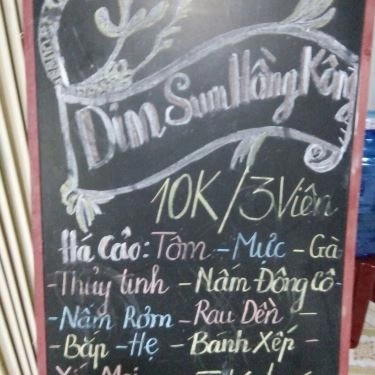 Dim Sum Hồng Kông
10K/3 Viên
Há Cảo: Tôm - Mực - Gà
- Thủy tinh - Nấm Đông Cô -
- Nấm Rơm - Rau Dền -
- Bắp - Hẹ - Bánh Xếp -